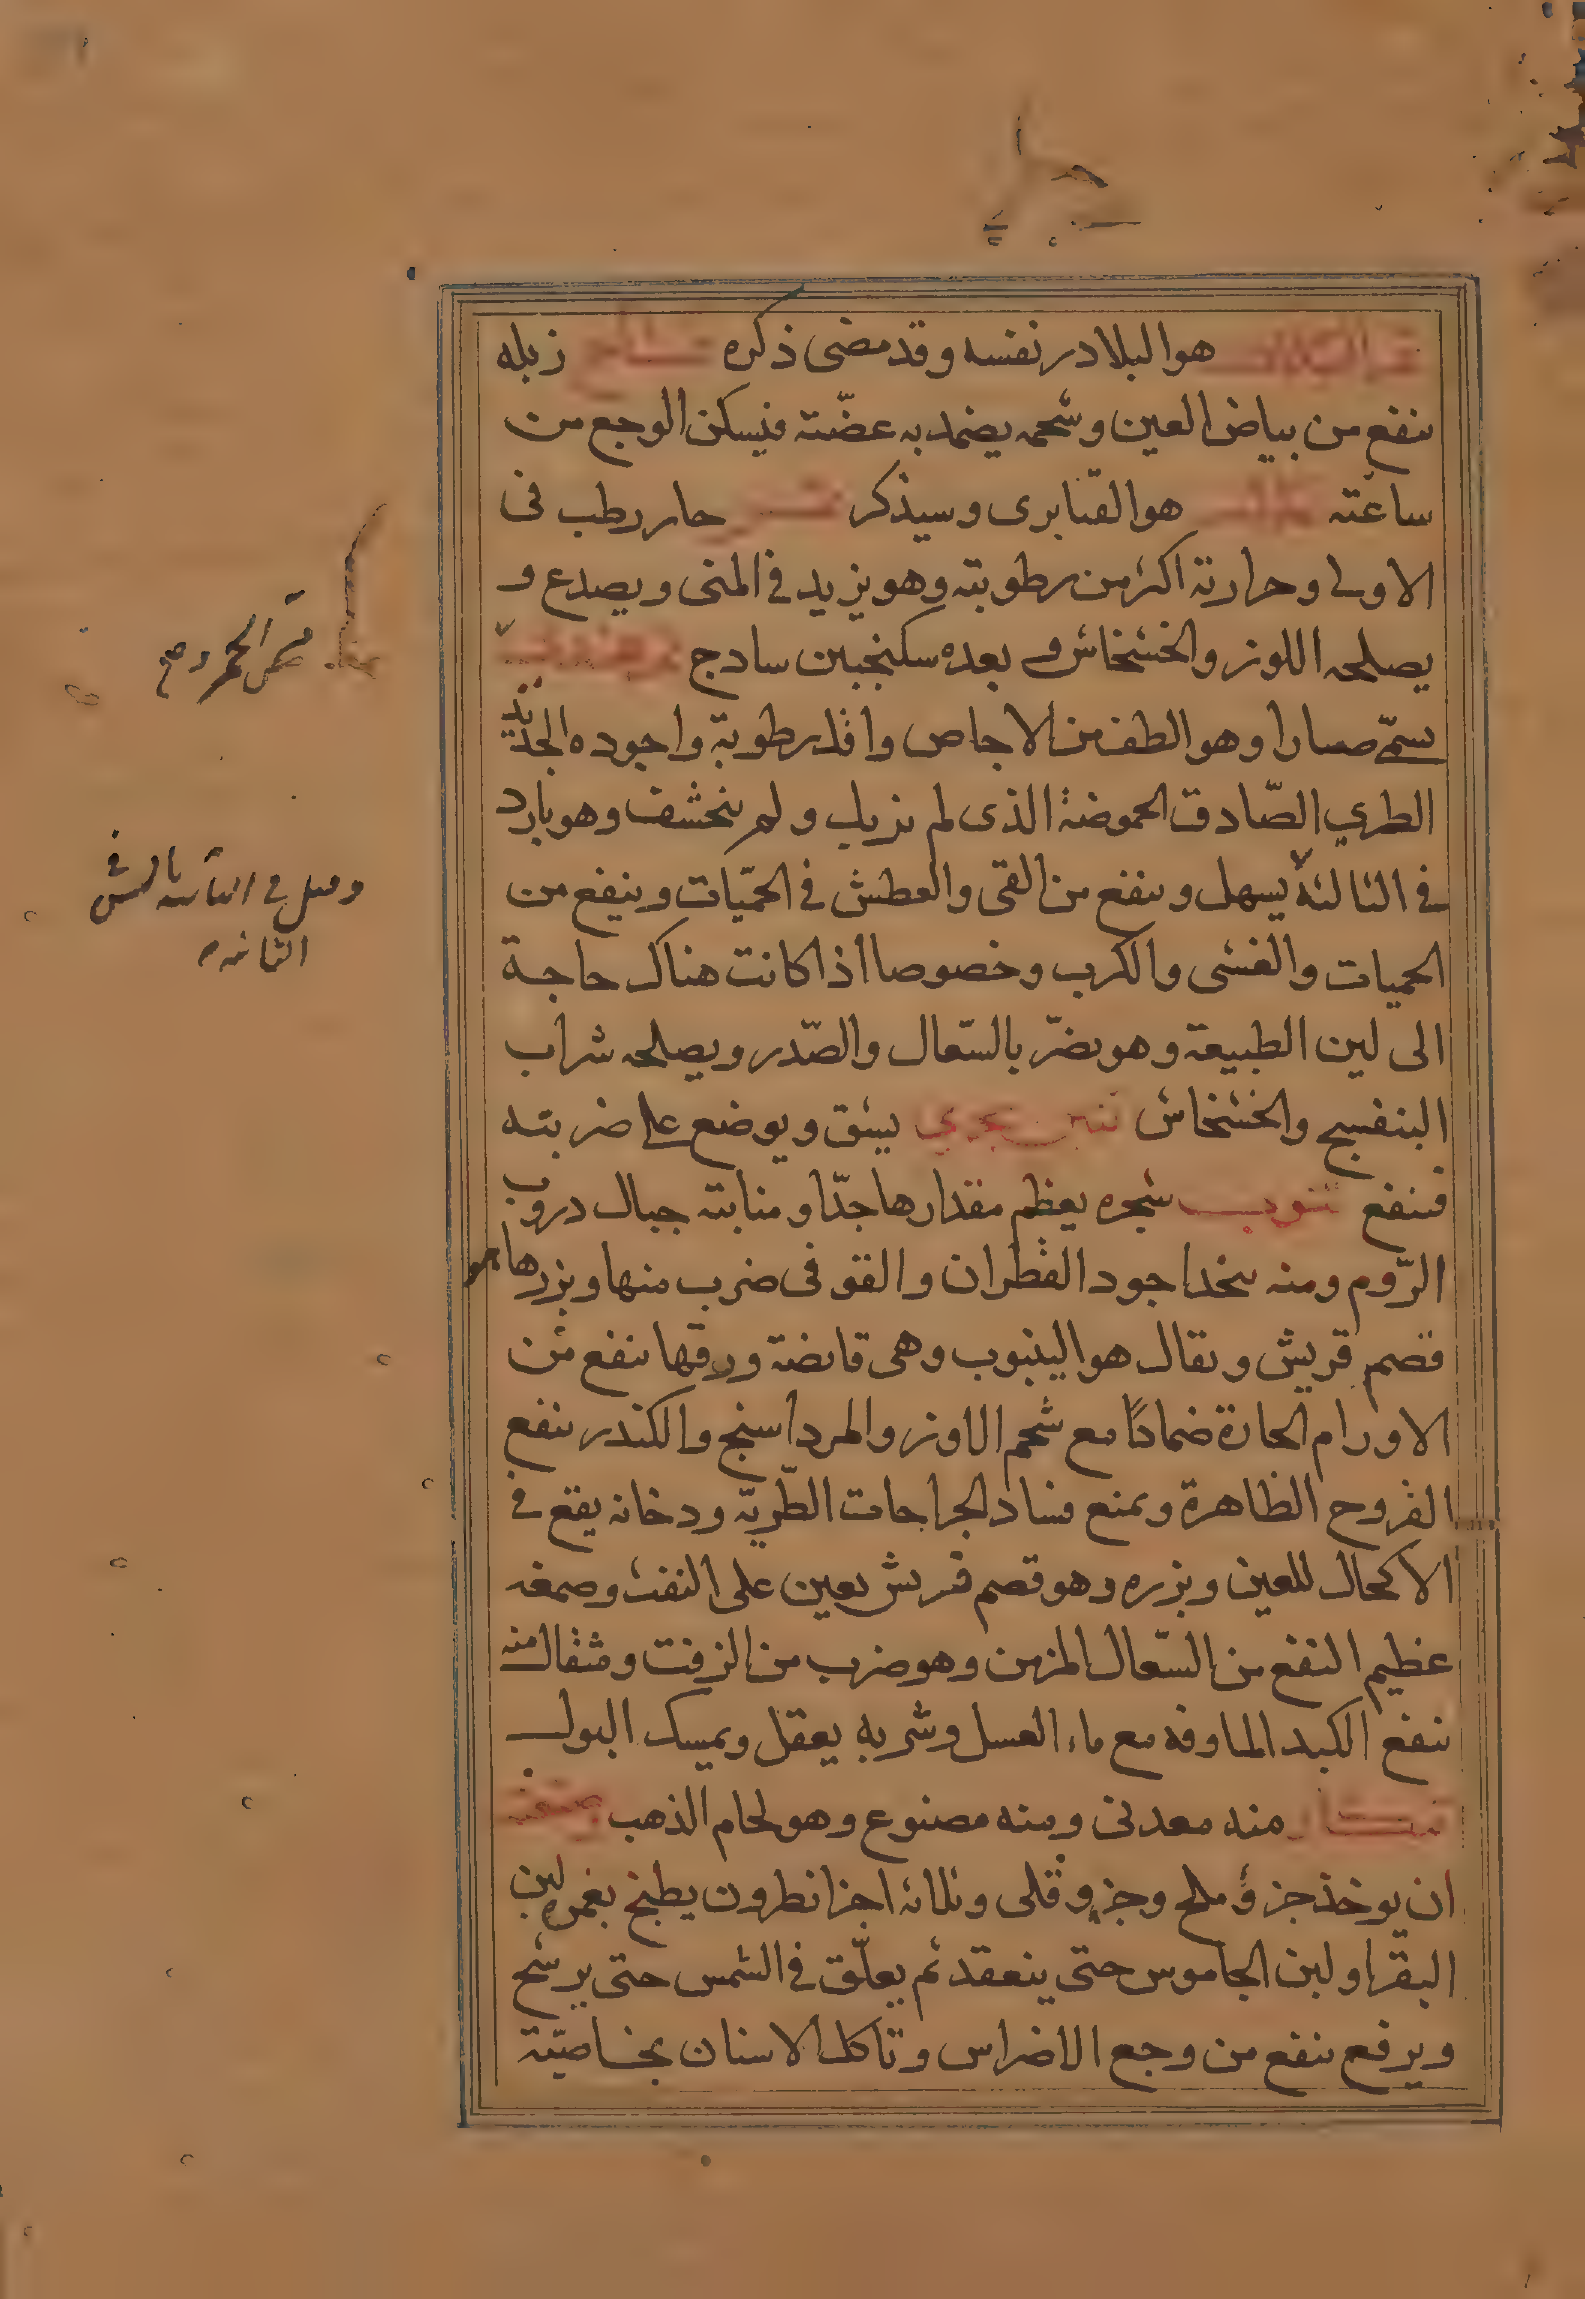 هو البلادر نفسه وقد مضى ذكره تمساح زبله
ينفع من بياض العين وشحمه يضمد به عضّته فيسكن الوجع من
ساعته هو القنابرى وسيذكر تمر حار رطب فى
الاولى وحرارته اكثر من رطوبته وهو يزيد في المنى ويصدع و
يصلحه اللوز والخشخاش و بعده سكنجبين سادج تمر هندى
يسمّى صبارا وهو الطف من الاجاص واقل رطوبة واجوده الجديد
الطري الصّادق الحموضة الذى لم يزبل ولم ينحشف وهو بارد
في الثالثة يسهل وينفع من القى والعطش في الحميّات وينفع من
الحميات والغشى والكرب وخصوصا اذا كانت هناك حاجة
الى لين الطبيعة وهو يضرّ بالسّعال والصّدر ويصلحه شراب
البنفسج والخشخاش تنين بحري يشق ويوضع على ضربته
فينفع تنوب شجره يعظم مقدارها جدّا ومنابته جبال دروب
الرّوم ومنه يتخذ اجود القطران والقو فى ضرب منها وبزرها هو
قضم قريش ويقال هو الينبوب وهى قابضة ورقها ينفع من
الاورام الحارة ضمادًا مع شحم الاوز والمرداسنج والكندر ينفع
القروح الظاهرة ويمنع فساد الجراحات الطّريّه ودخانه يقع في
الاكحال للعين وبزره وهو قضم قريش يعين على النفث وصمغه
عظيم النفع من السّعال المزمن وهو ضرب من الزفت ومثقال منه
ينفع الكبد الماوفه مع ماء العسل وشربه يعقل ويمسك البول
تنكار منه معدنى ومنه مصنوع وهو لحام الذهب وصنعته
ان يوخذ جزؤ ملح وجزو قلى وثلاثه اجزا نطرون يطبخ بغمره لبن
البقر او لبن الجاموس حتى ينعقد ثم يعلّق في الشمس حتى يرشح
ويرفع ينفع من وجع الاضراس وتاكل الاسنان بخاصيّته
وقيل في الثانيه
الثانيه